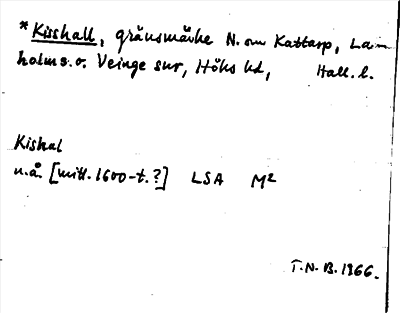 *Kisshall, gränsmärke N. om Kattarp, Laholms o. Veinge snr, Höks hd, Hall. l.
Kishal
u.å. [mitt. 1600-t.?] LSA M²
T.N.B. 1966.